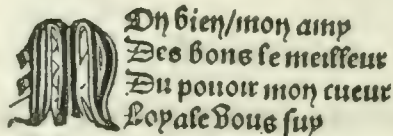 MOn bien/mon amy
Des bons le meilleur
Du pouoir mon cueur
Loyale vous suy